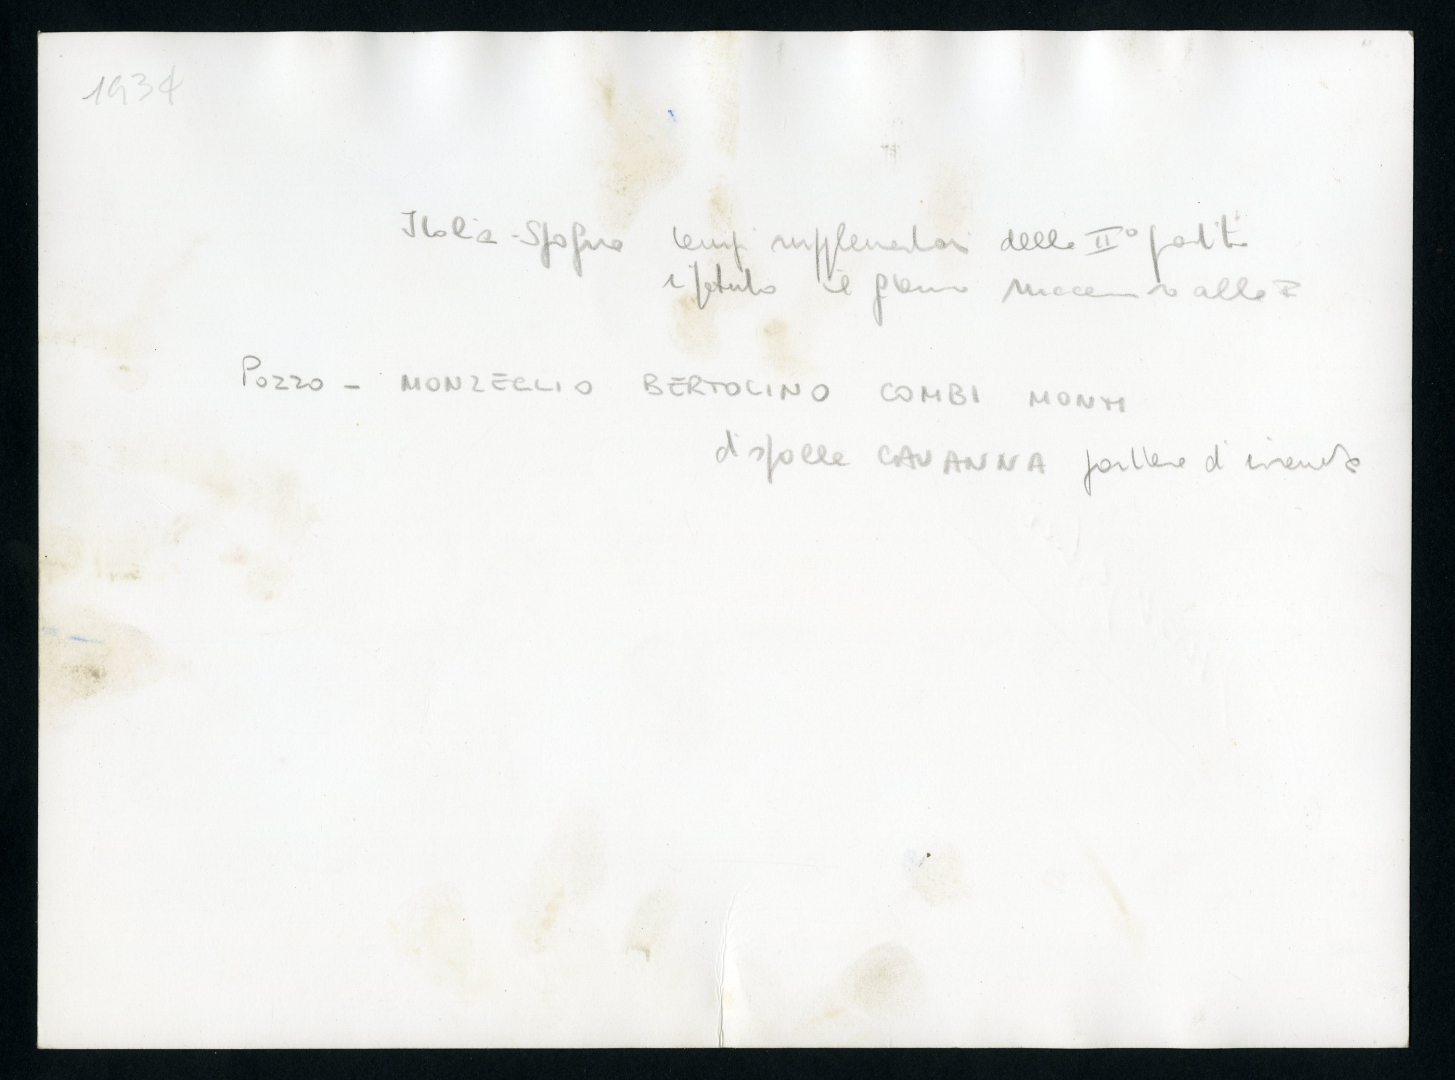 1934
Italia-Spagna tempi supplementari della II° partita
ripetuta il giorno successivo alla I
Pozzo - MONZEGLIO BERTOLINO COMBI MONTI
di spalle CAVANNA portiere di riserva